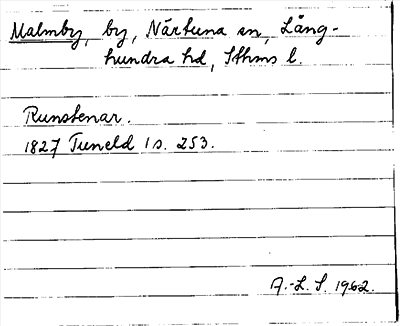 Malmby, by, Närtuna sn, Lång-
hundra hd, Sthms l.
Runstenar.
1827 Tuneld 1 s. 253.
A.-L. S. 1962.